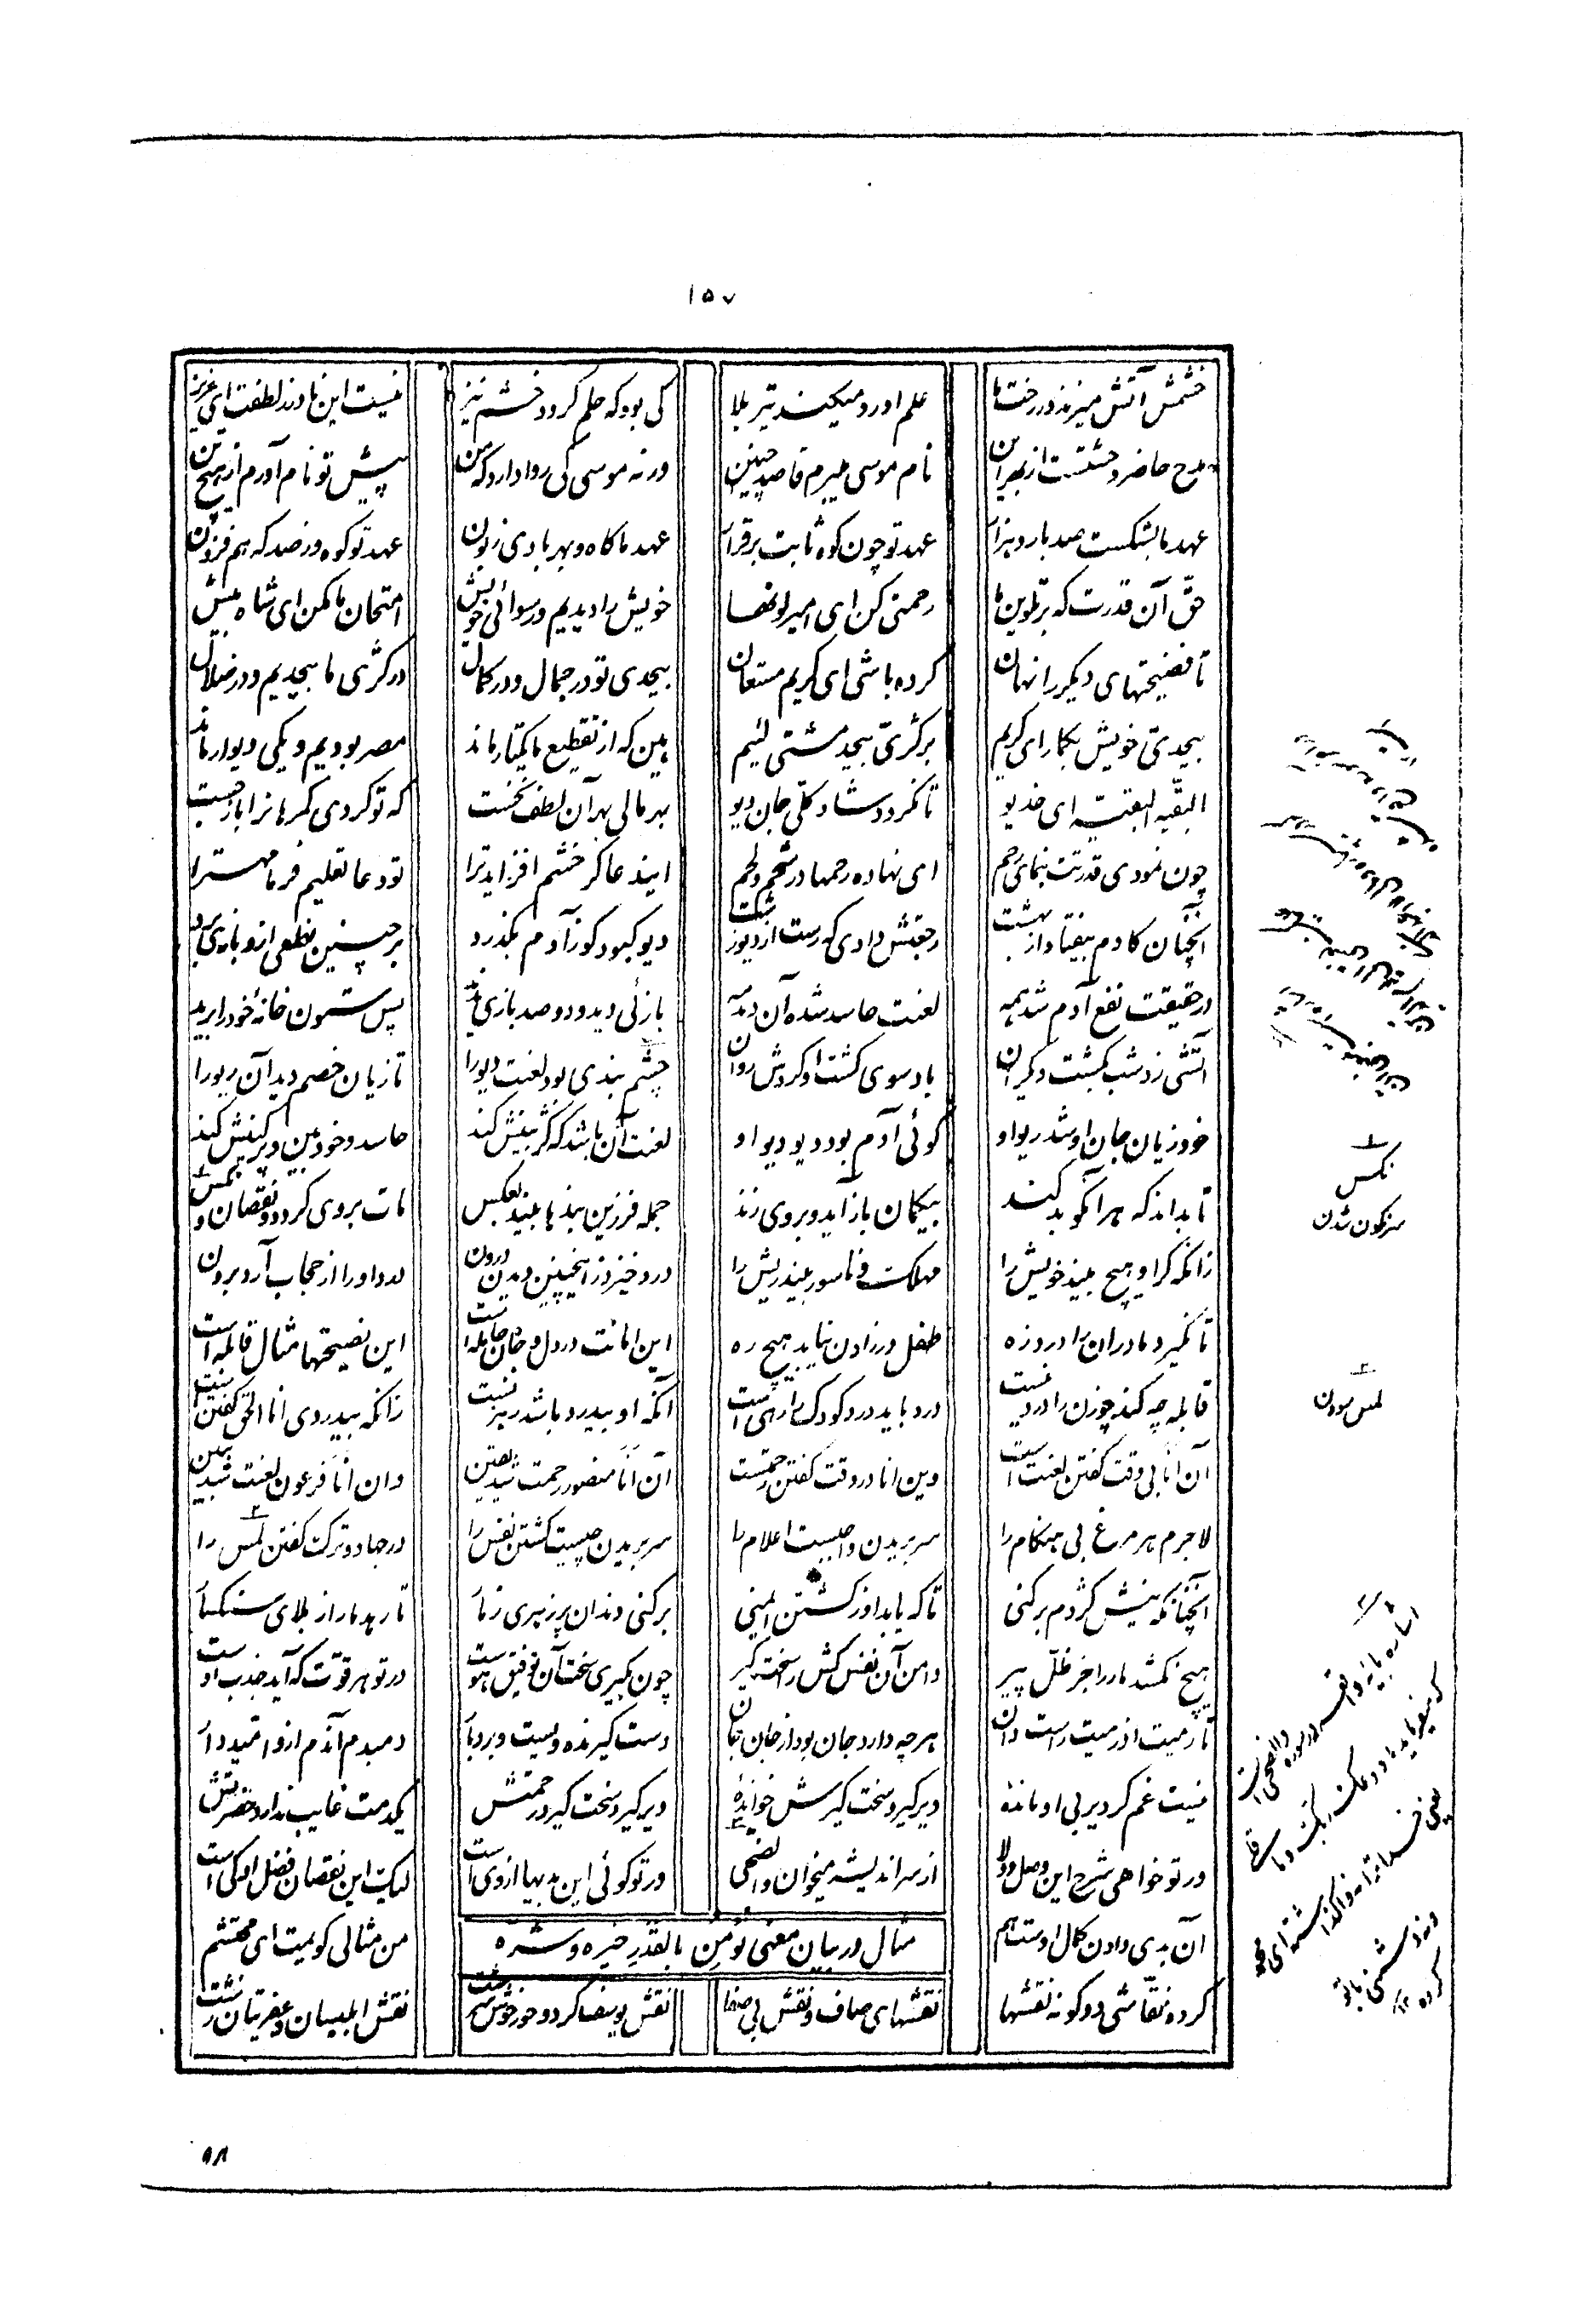 ١٥٧
خشمش آتش میزند در رخت ما علم او رد میکند تیر بلا کی بود که حلم گردد خشم نیز نیست این نادر ز لطفت ای عزیز
مدح حاضر وحشتست از بهر این نام موسی میبرم قاصد چنین ورنه موسی کی روا دارد که من پیش تو نام آورم از هیچ تن
عهد ما بشکست صد بار و هزار عهد تو چون کوه ثابت برقرار عهد ما کاه و بهر بادی زبون عهد تو کوه و ز صد که هم فزون
حقّ آن قدرت که بر تلوین ما رحمتی کن ای امیر لونها خویش را دیدیم و رسوائی خویش امتحان ما مکن ای شاه بیش
تا فضیحتهای دیگر را نهان کرده باشی ای کریم مستعان بیحدی تو در جمال و در کمال در کژی ما بیحدیم و در ضلال
بیحدیّ خویش بگمار ای کریم بر کژیّ بیحد مشتی لئیم هین که از تقطیع ما یکتار ماند مصر بودیم و یکی دیوار ماند
البقیّه البقیّه ای خدیو تا نگردد شاد کلّی جان دیو بهر ما نی بهر آن لطف نخست که تو کردی گمرهانرا باز جست
چون نمودی قدرتت بنمای رحم ای نهاده رحمها در شحم و لحم این دعا گر خشم افزاید ترا تو دعا تعلیم فرما مهترا
آنچنان کادم بیفتاد از بهشت رجعتش دادی که رست از دیو زشت دیو کبود کو ز آدم بگذرد بر چنین نطعی ازو بازی برد
در حقیقت نفع آدم شد همه لعنت حاسد شده آن دمدمه بازئی دید و دو صد بازی ندید پس ستون خانهٔ خود را برید
آتشی زد شب بکشت دیگران باد سوی کشت او کردش روان چشم بندی بود لعنت دیو را تا زیان خصم دید آن ریو را
خود زیان جان او شد ریو او گوئی آدم بود دیو دیو او لعنت آن باشد که کژبینش کند حاسد و خودبین و پر کینش کند
تا بداند که هر آنکو بد کند بیگمان باز آید و بر وی زند جمله فرزین بندها بیند بعکس مات بر وی گردد و نقصان و نکس
زانکه گر او هیچ بیند خویش را مهلک و ناسور بیند ریش را درد خیزد زینچنین دیدن درون درد او را از حجاب آرد برون
تا نگیرد مادران را درد زه طفل در زادن نیابد هیچ ره این امانت در دل و جان حامله است این نصیحتها مثال قابله است
قابله چه کند چو زن را درد نیست درد باید درد کودک را رهی است آنکه او بیدرد باشد رهزنیست زانکه بیدردی انا الحق گفتنیست
آن انا بی وقت گفتن لعنت است وین انا در وقت گفتن رحمتست آن اَنَا منصور رحمت شد یقین وان اَنَا فرعون لعنت شد ببین
لاجرم هر مرغ بی هنگام را سر بریدن واجبست اعلام را سر بریدن چیست کشتن نفس را در جهاد و ترک گفتن لمس را
آنچنانکه نیش کژدم بر کنی تا که یابد او ز کشتن ایمنی بر کنی دندان پر زهری ز مار تا رهد مار از بلای سنگسار
هیچ نکشد مار را جز ظلّ پیر دامن آن نفس کش را سخت گیر چون بگیری سخت آن توفیق هوست در تو هر قوّت که آید جذب اوست
ما رمیت اذ رمیت راست دان هر چه دارد جان بود از جان جان دست گیرنده ویست و بردبار دمبدم آندم ازو امید دار
نیست غم گر دیر بی او ماندهٔ دیرگیر و سخت گیرش خواندهٔ دیر گیرد سخت گیرد رحمتش یکدمت غایب ندارد حضرتش
ور تو خواهی شرح این وصل و ولا از سر اندیشه میخوان والضحی ور تو گوئی این بدیها از وی است لیک این نقصان فضل او کی است
آن بدی دادن کمال اوست هم من مثالی گویمت ای محتشم
مثال در بیان معنی نؤمن بالقدر خیره و شره
کرده نقّاشی دو گونه نقشها نقشهای صاف و نقش بی صفا نقش یوسف کرد و حور خوش سرشت نقش ابلیسان و عفریتان زشت
نکس
سرنگون شدن
لمس سودن